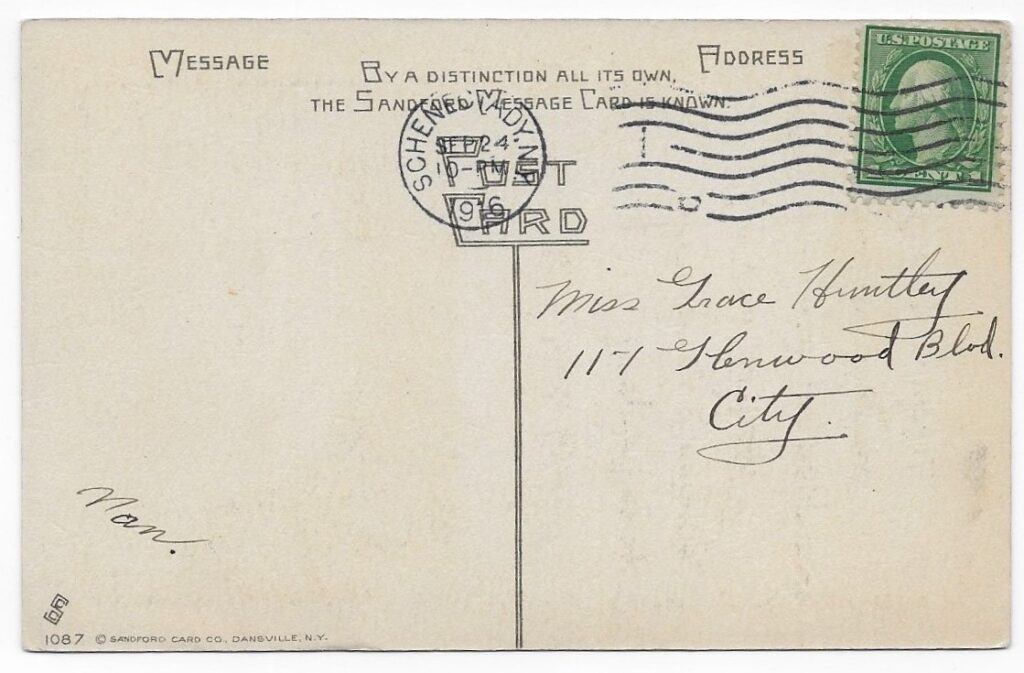 MESSAGE
ADDRESS
BY A DISTINCTION ALL ITS OWN,
THE SANDFORD MESSAGE CARD IS KNOWN.
POST
CARD
SCHENECTADY, N.Y.
SEP 24
10-PM
1916
U.S. POSTAGE
Miss Grace Huntley
117 Glenwood Blvd.
City.
Nan.
1087 © SANDFORD CARD CO., DANSVILLE, N.Y.